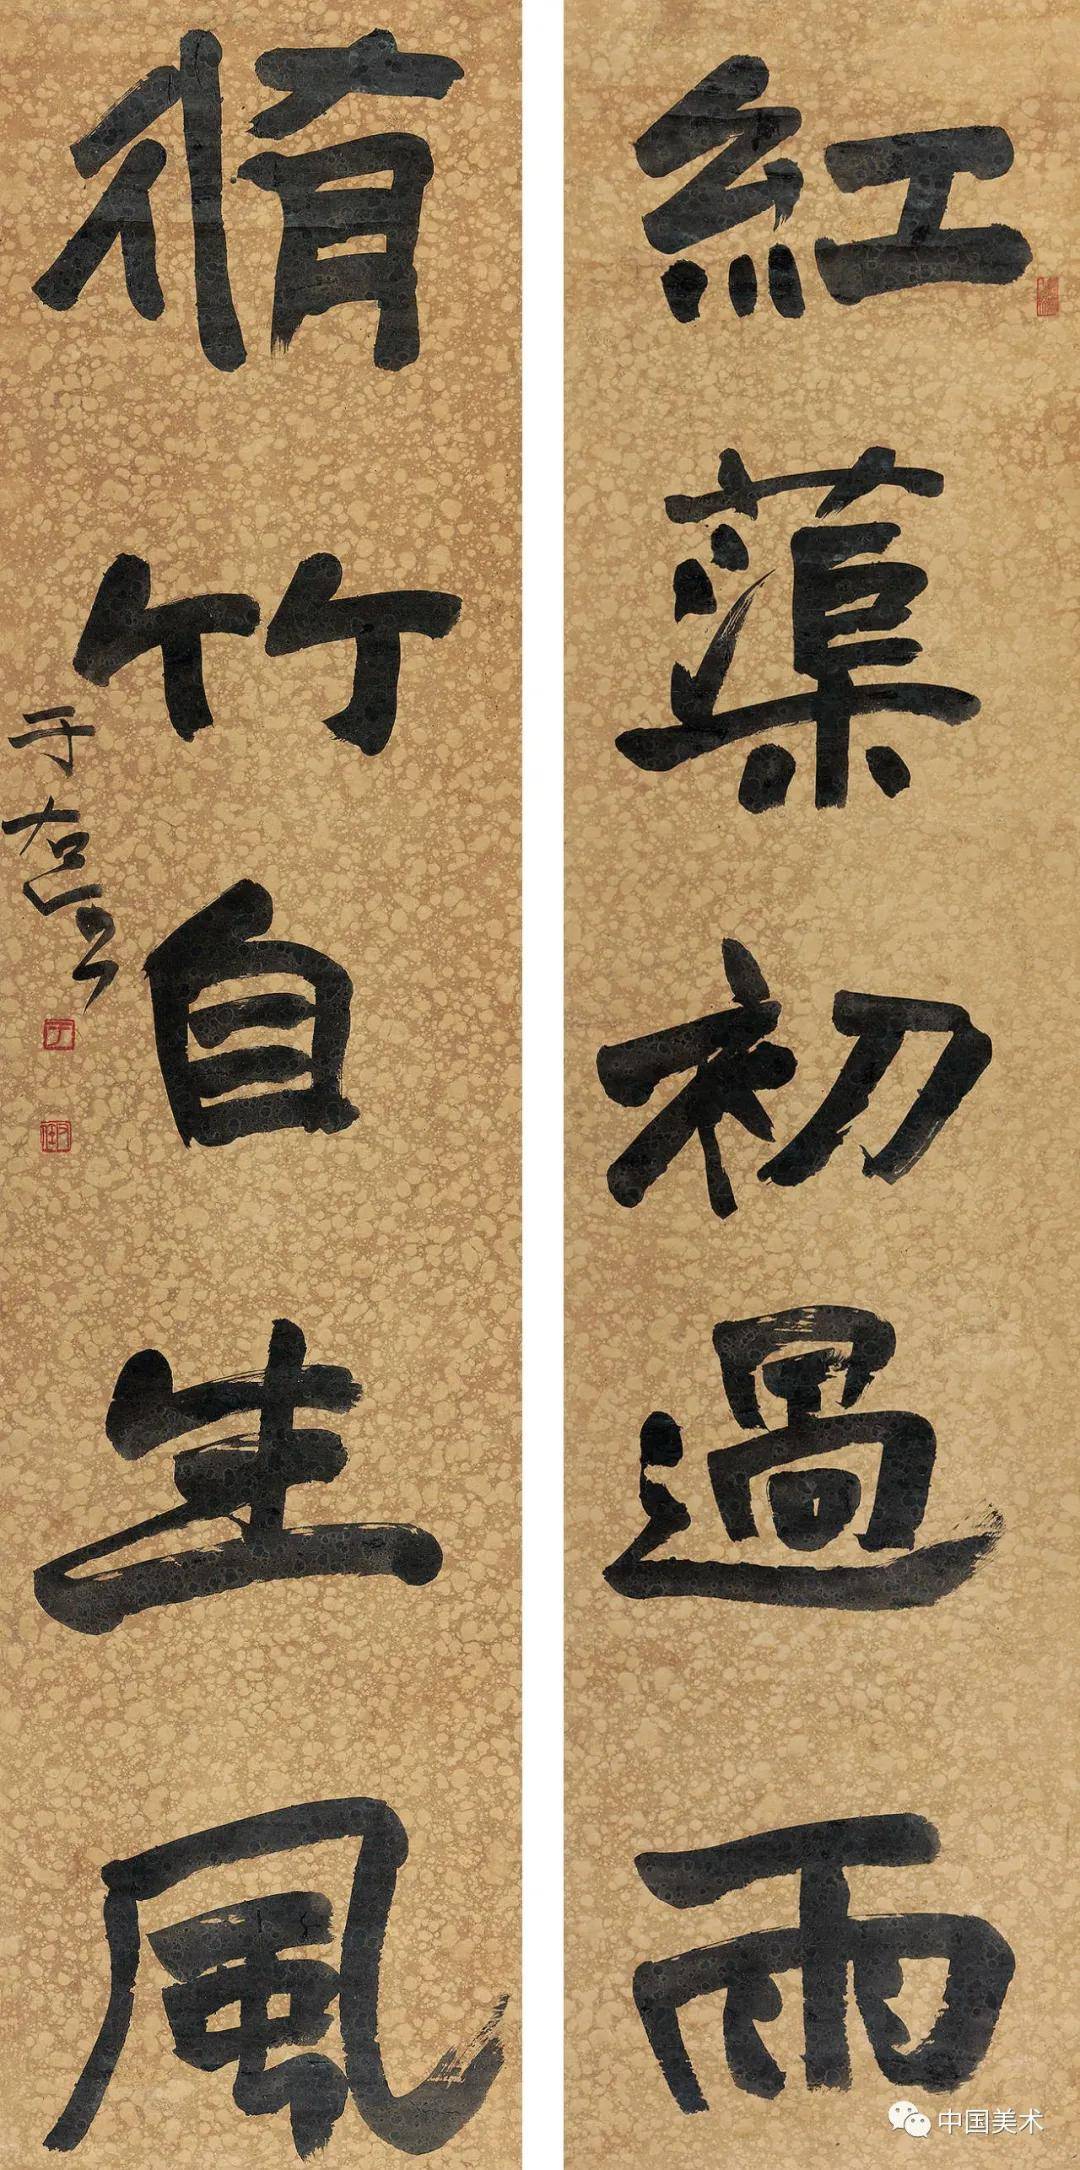 紅蕖初過雨
脩竹自生風
于右任
中国美术